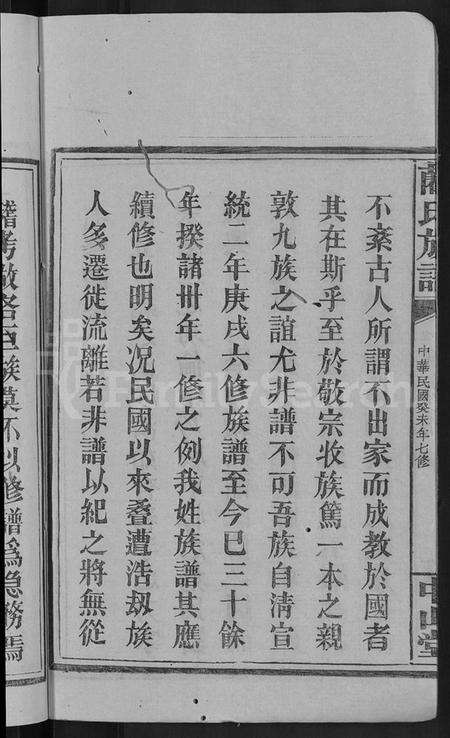 氏族譜
中華民國癸未年七修
不紊古人所謂不出家而成教於國者
其在斯乎至於敬宗收族篤一本之親
敦九族之誼尤非譜不可吾族自清宣
統二年庚戌六修族譜至今已三十餘
年揆諸卅年一修之例我姓族譜其應
續修也明矣况民國以來叠遭浩刼族
人多遷徙流離若非譜以紀之將無從
族莫不以修譜爲急務焉